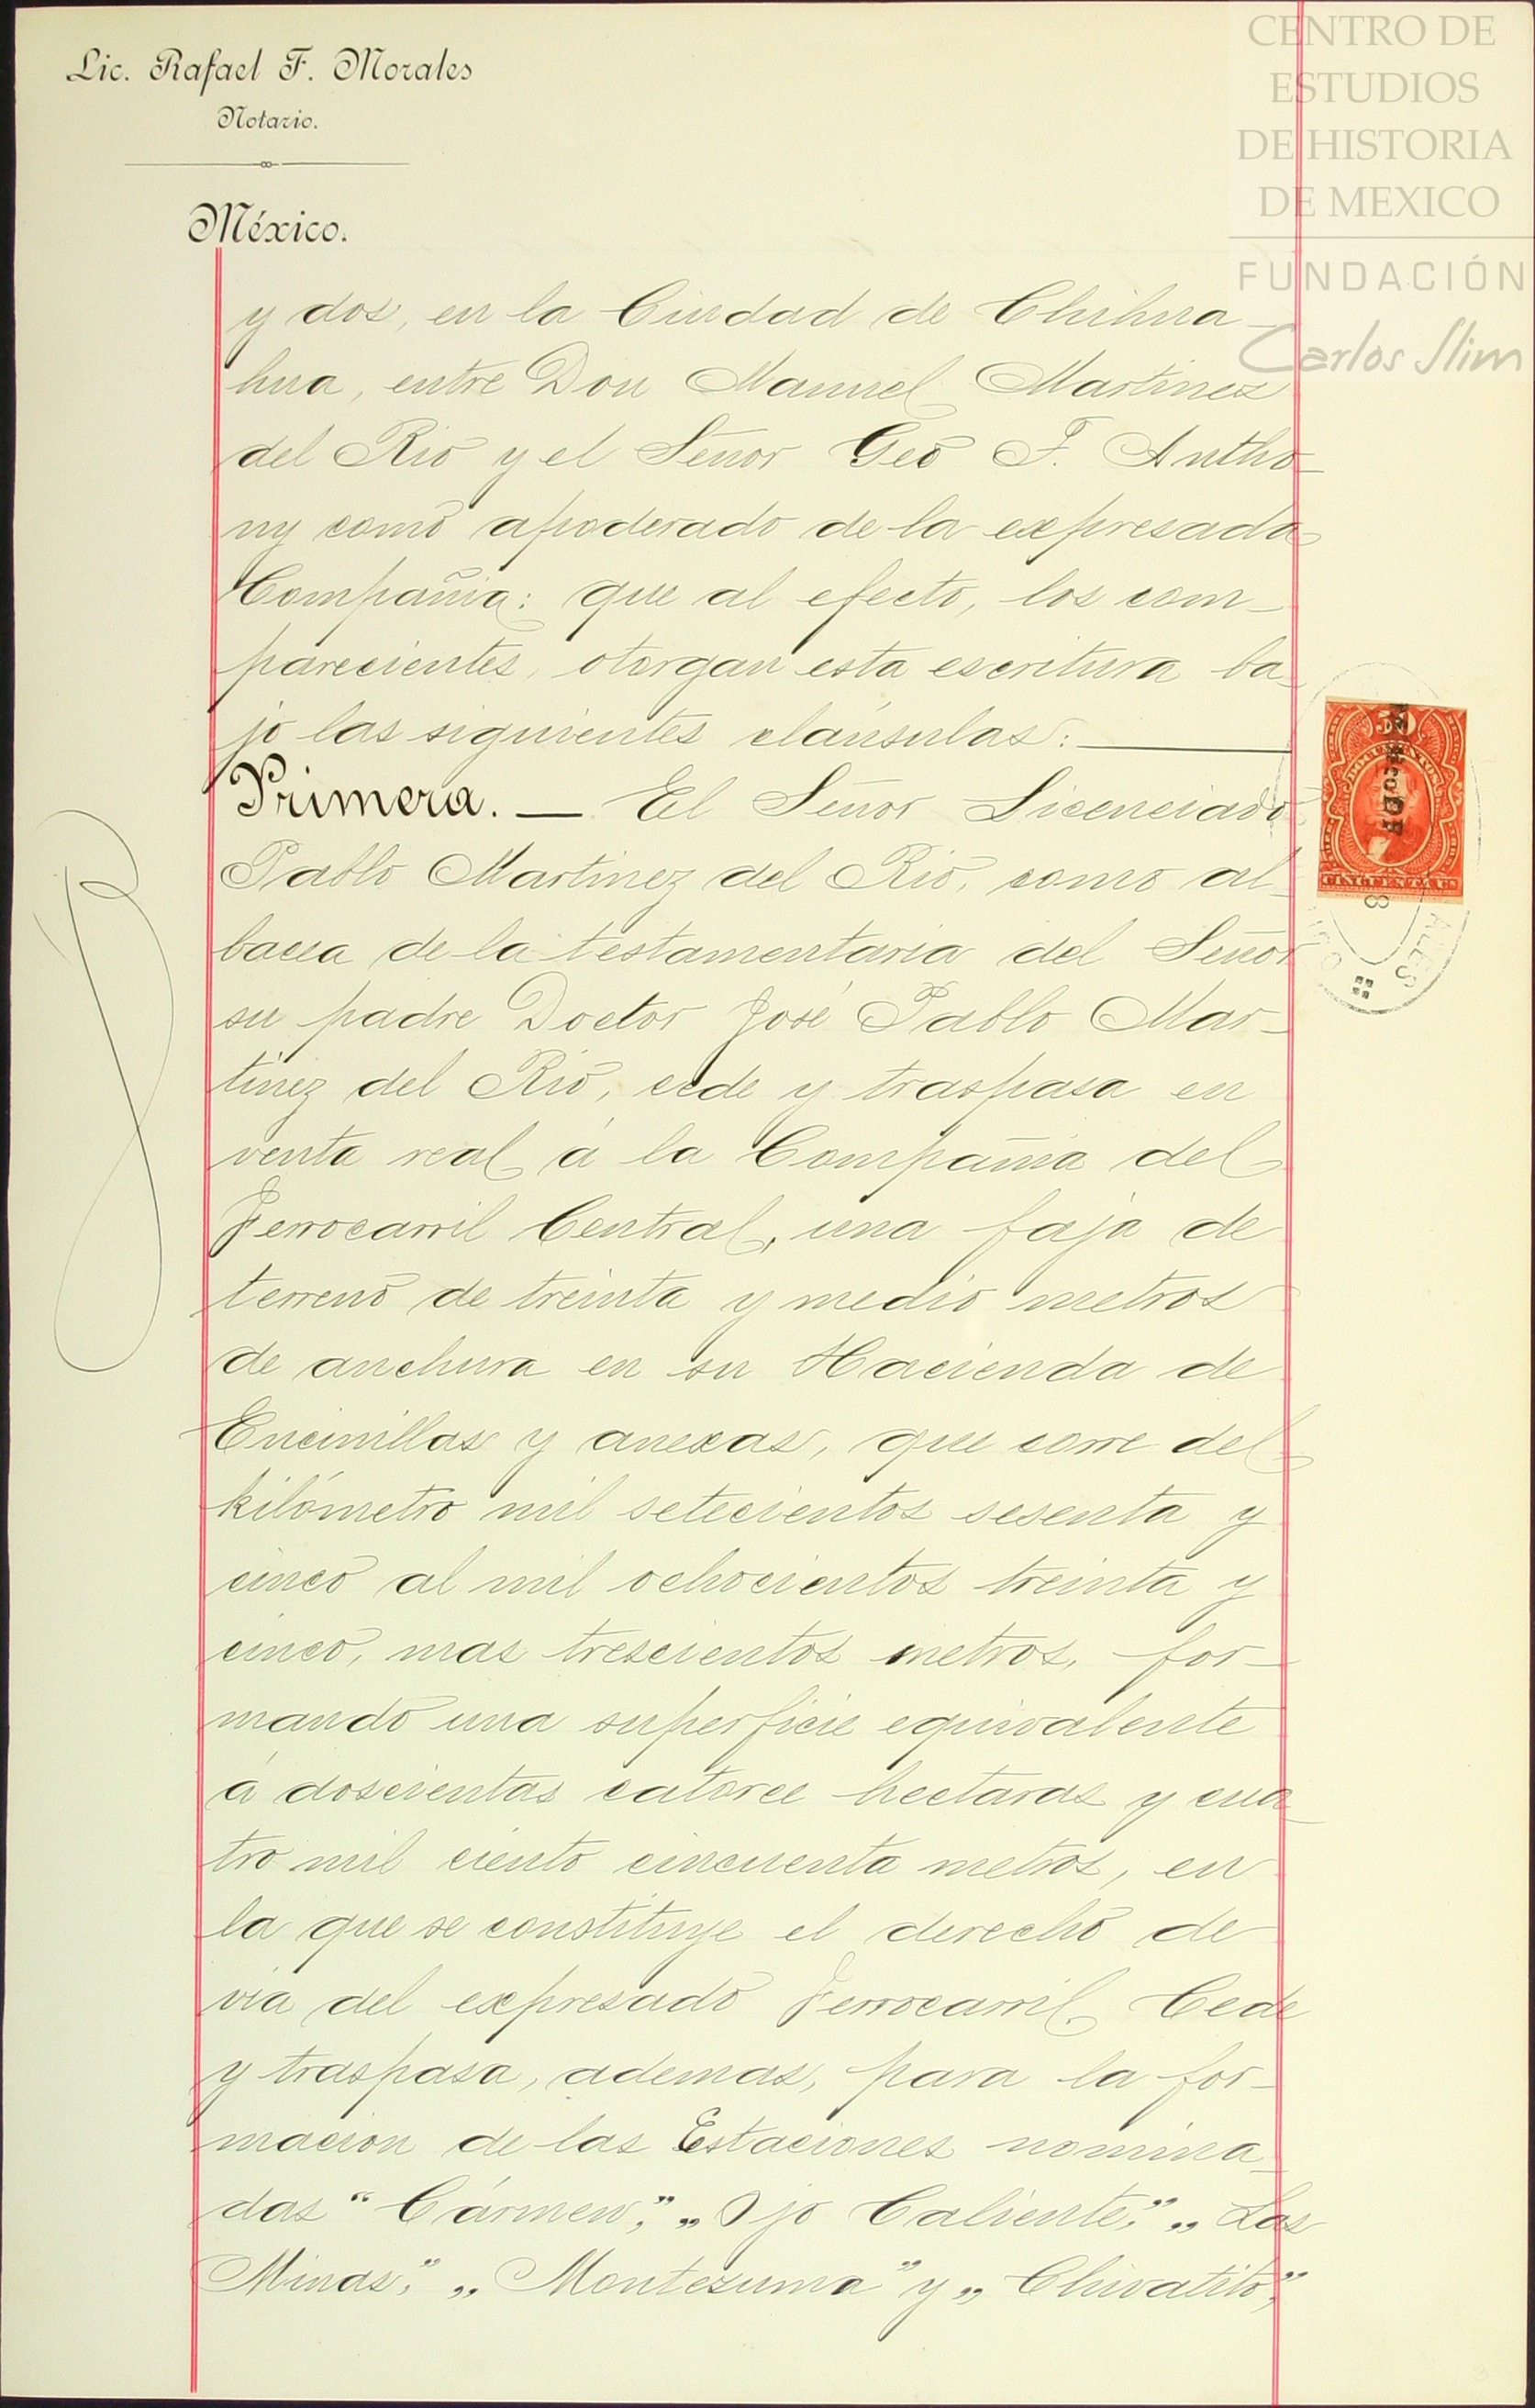 Lic. Rafael F. Morales
Notario.
México.
CENTRO DE
ESTUDIOS
DE HISTORIA
DE MEXICO
FUNDACIÓN
Carlos Slim
y dos, en la Ciudad de Chihua-
hua, entre Don Manuel Martinez
del Rio y el Señor Geo F. Antho-
ny como apoderado de la expresada
Compañia: que al efecto, los com-
parecientes, otorgan esta escritura ba-
jo las siguientes cláusulas:
Primera. — El Señor Licenciado
Pablo Martinez del Rio, como al-
bacea de la testamentaria del Señor
su padre Doctor José Pablo Mar-
tinez del Rio, cede y traspasa en
venta real á la Compañia del
Ferrocarril Central, una faja de
terreno de treinta y medio metros
de anchura en su Hacienda de
Encinillas y anexas, que corre del
kilómetro mil setecientos sesenta y
cinco al mil ochocientos treinta y
cinco, mas trescientos metros, for-
mando una superficie equivalente
á doscientas catorce hectaras y cua-
tro mil ciento cincuenta metros, en
la que se constituye el derecho de
via del expresado Ferrocarril. Cede
y traspasa, ademas, para la for-
macion de las Estaciones nomina-
das "Cármen," „Ojo Caliente," „Las
Minas," „Montezuma" y „Chivatito,"
50
DOCUMENTOS
CINCUENTA CS